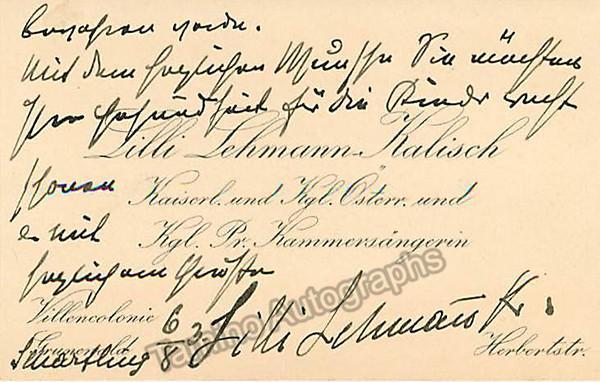 bewahren werde.
Mit dem herzlichen Wunsche Sie möchten
Ihre Gesundheit für die Kinder recht
Lilli Lehmann-Kalisch
schonen Kaiserl. und Kgl. Österr. und
mit Kgl. Pr. Kammersängerin
herzlichem Grüße
Villencolonie 6/8 3. Lilli Lehmann K.
Grunewald. Herbertstr.
Scharfling
Tamino Autographs